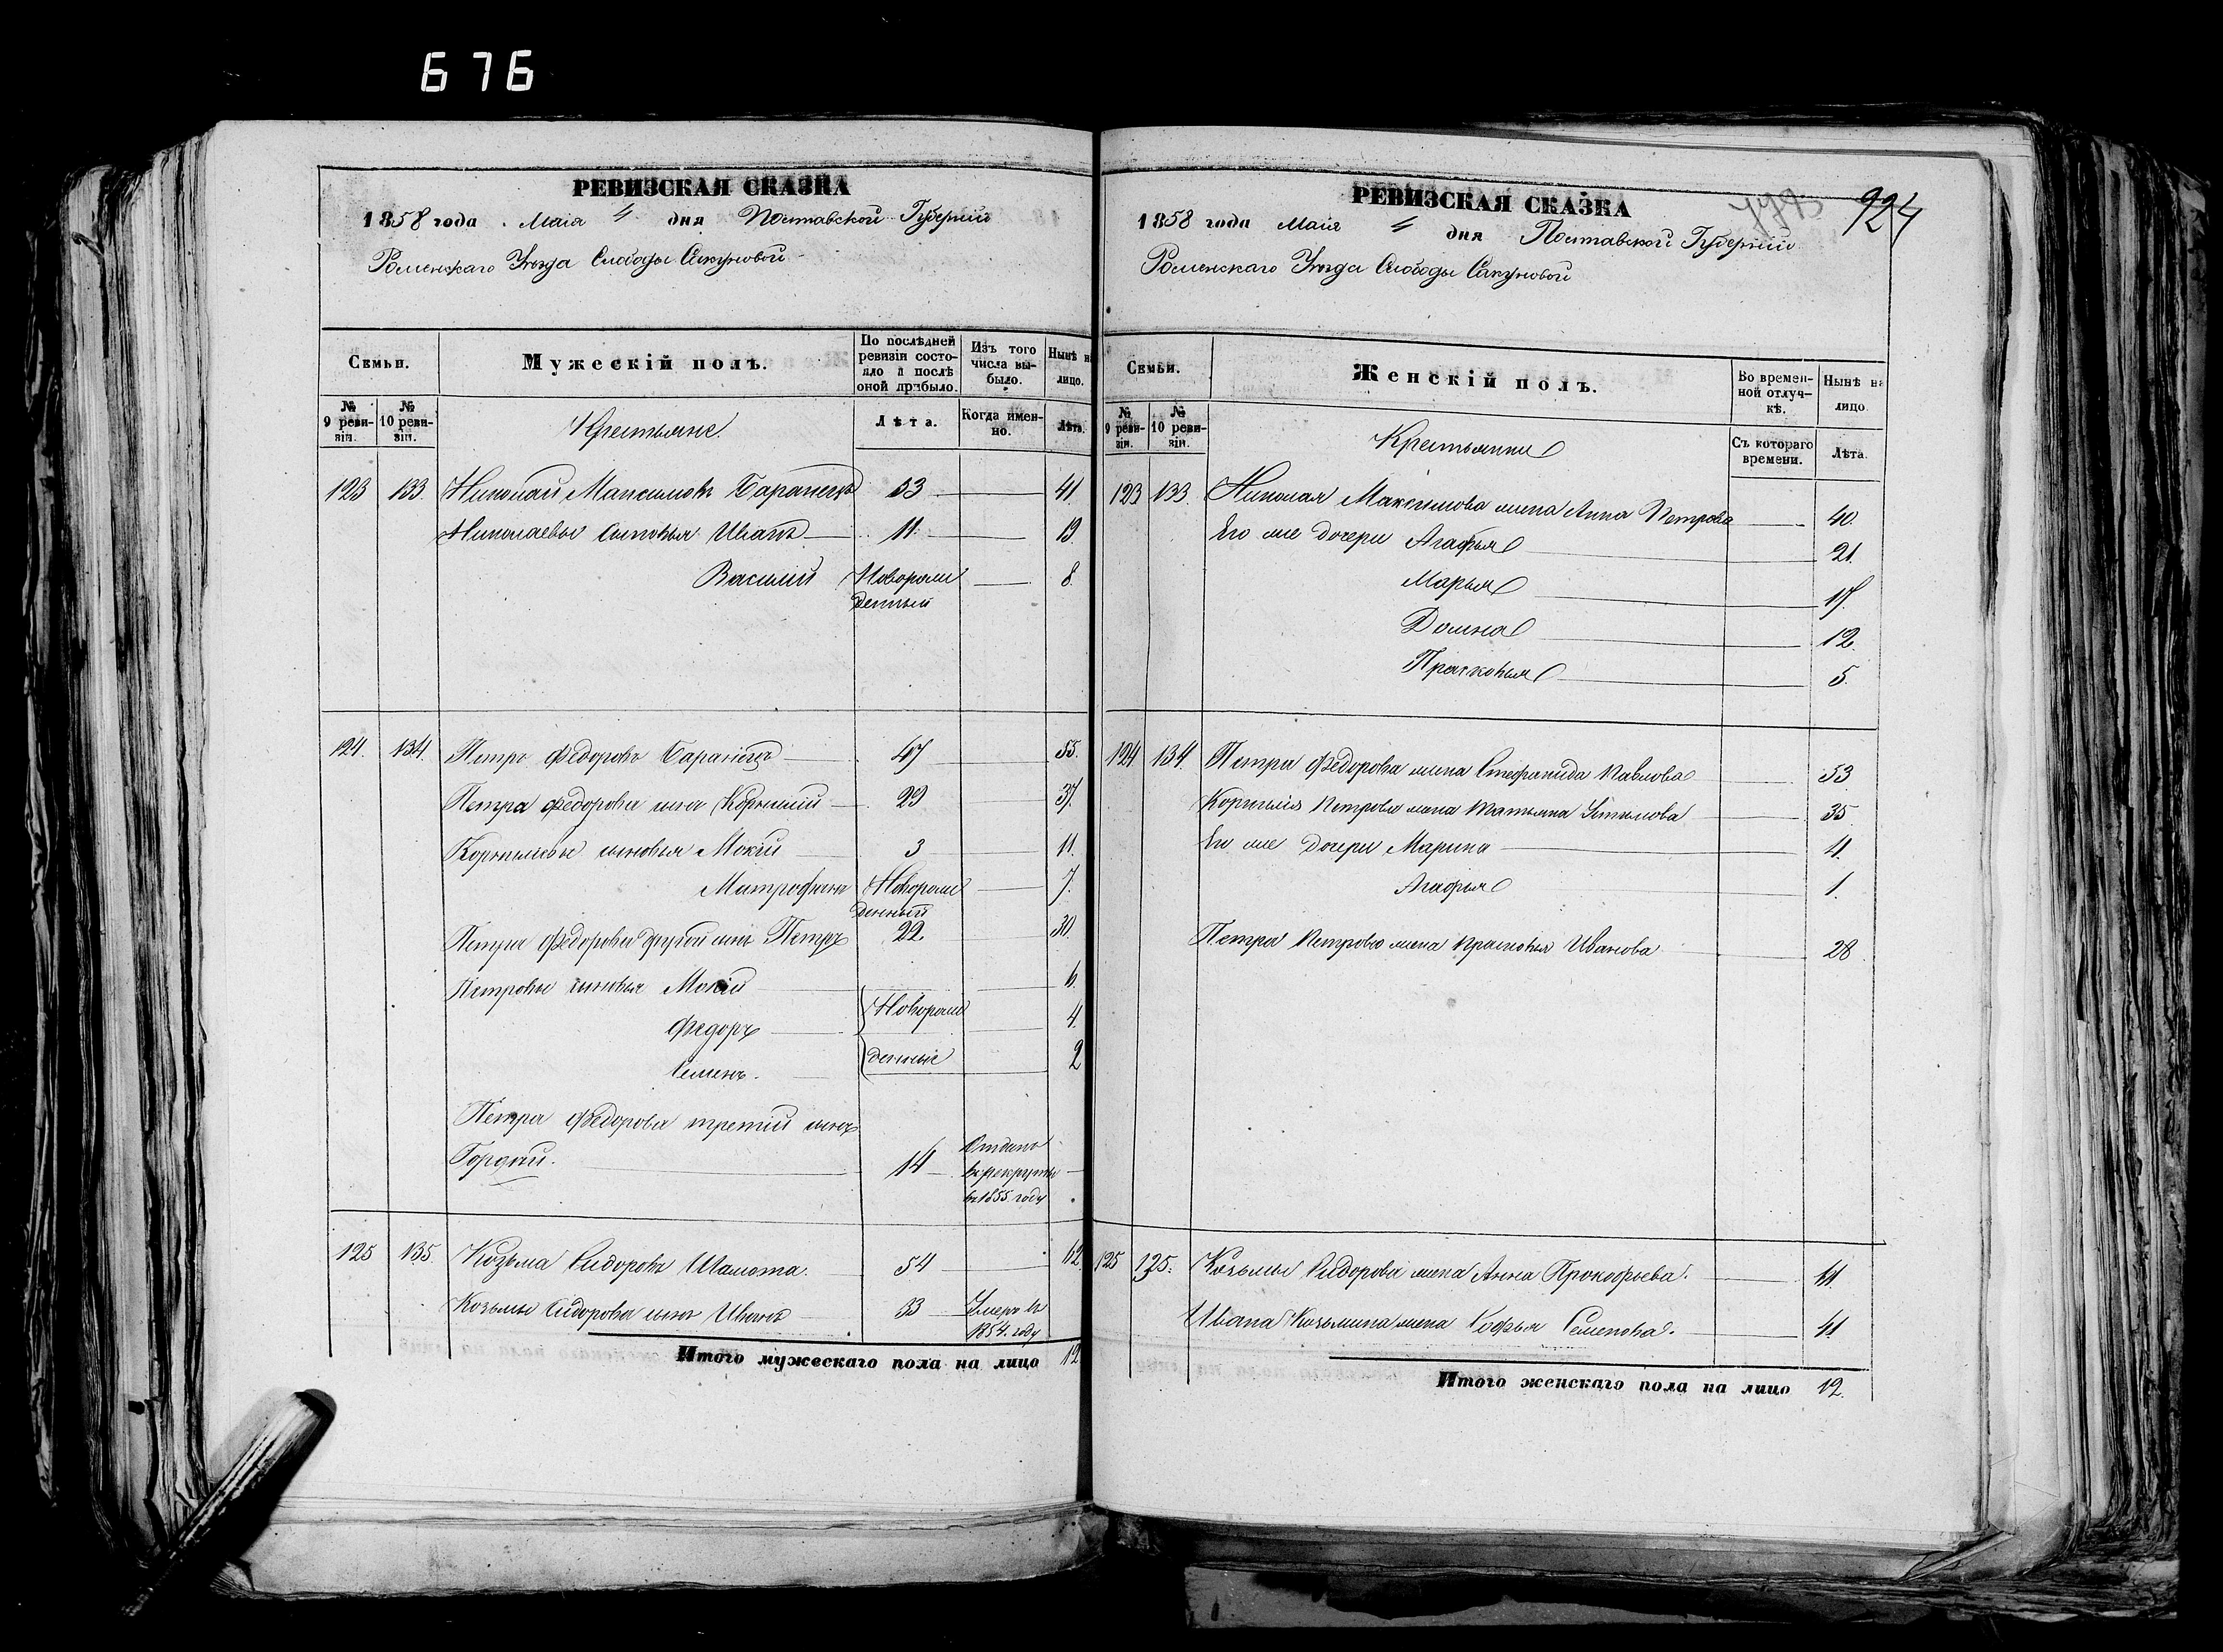 676
РЕВИЗСКАЯ СКАЗКА
1858 года Маія 4 дня Полтавской Губерніи
Роменскаго Уѣзда Слободы Сакуновой
Семьи.
Мужескій полъ.
По послѣдней ревизіи состояло и послѣ оной прибыло.
Изъ того числа выбыло.
Нынѣ на лицо.
№ 9 ревизіи.
№ 10 ревизіи.
Крестьяне.
Лѣта.
Когда именно.
Лѣта.
123 133. Николай Максимовъ Баранецъ 33 41.
Николаевы сыновья Иванъ 11. 19.
Василий Новорожденный 8.
124. 134. Петръ Федоровъ Баранецъ 47 55.
Петра Федорова сынъ Корнилий 29 37.
Корнилиевы сыновья Мокій 3 11.
Митрофанъ Новорожденный 7.
Петра Федорова другой сынъ Петръ 22 30.
Петровы сыновья Мокій 6.
Федоръ Новорож 4.
Семенъ. денные 2
Петра Федорова третий сынъ
Гордѣй. 14 Отданъ
в рекруты
въ 1855 году
125 135. Козьма Сидоровъ Шамота. 54 62
Козьмы Сидорова сынъ Иванъ 33 Умеръ въ
1854. году
Итого мужескаго пола на лицо 12
РЕВИЗСКАЯ СКАЗКА
924
1858 года Маія 4 дня Полтавской Губерніи
Роменскаго Уѣзда Слободы Сакуновой
Семьи.
Женскій полъ.
Во временной отлучкѣ.
Нынѣ на лицо.
№ 9 ревизіи.
№ 10 ревизіи.
Крестьянки
Съ котораго времени.
Лѣта.
123 133. Николая Максимова жена Анна Петрова 40.
Его же дочери Агафья 21.
Марья 17.
Домна 12.
Прасковья 5.
124 134. Петра Федорова жена Стефанида Павлова 53
Корнилия Петрова жена Татьяна 35
Его же дочери Марина 4.
Агафья 1.
Петра Петрова жена Прасковья Иванова 28
125 135. Козьмы Сидорова жена Анна Прокофьева. 61.
Ивана Козьмина жена Софья Семенова. 41
Итого женскаго пола на лицо 12.